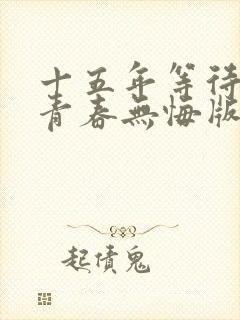 十五年等待
青春無悔版
起債鬼